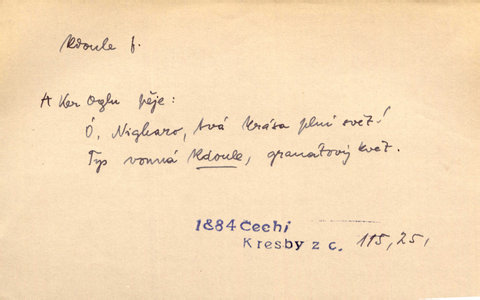 Kdoule f.
A Ker Oglu pěje:
Ó, Nigharo, tvá krása plní svět!
Tys vonná Kdoule, granátový květ.
1884 Čech i
Kresby z c. 115, 25,